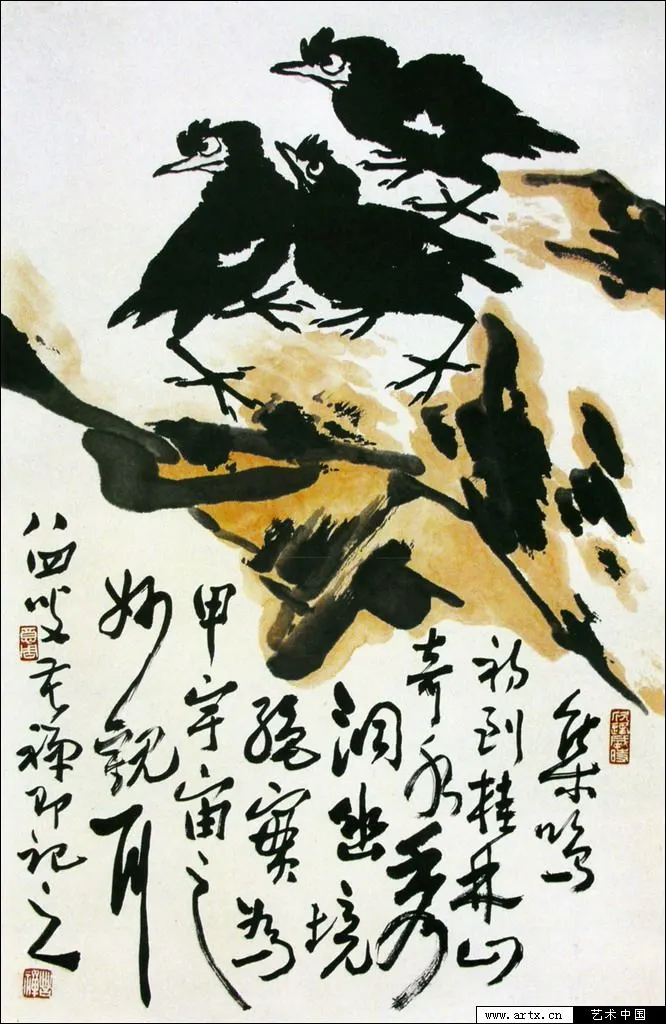 集鳴
初到桂林山
奇水秀
洞幽境
絕實為
甲宇宙之
妙觀耳
八四叟苦禪即記之
www.artx.cn 艺术中国